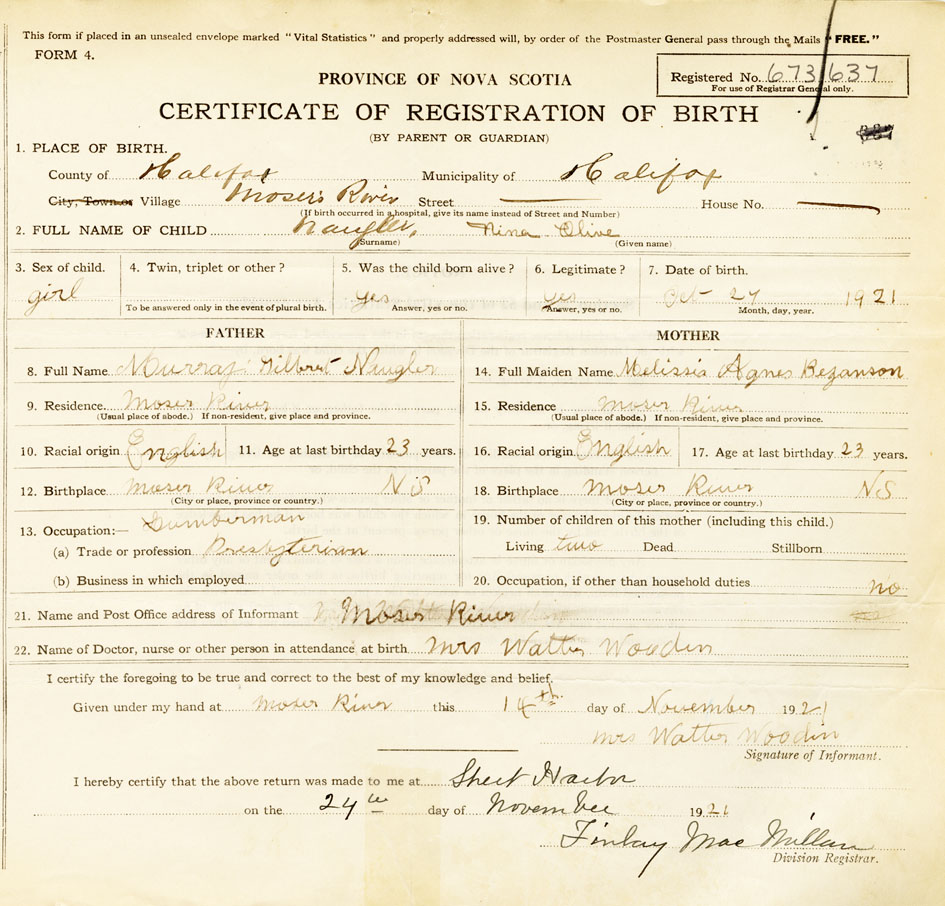 This form if placed in an unsealed envelope marked "Vital Statistics" and properly addressed will, by order of the Postmaster General pass through the Mails "FREE."
FORM 4.
Registered No. 673637
For use of Registrar General only.
PROVINCE OF NOVA SCOTIA
CERTIFICATE OF REGISTRATION OF BIRTH
(BY PARENT OR GUARDIAN)
1. PLACE OF BIRTH.
County of Halifax Municipality of Halifax
City, Town or Village Moser's River Street House No.
(If birth occurred in a hospital, give its name instead of Street and Number)
2. FULL NAME OF CHILD Naugler, Nina Olive
(Surname) (Given name)
3. Sex of child. 4. Twin, triplet or other? 5. Was the child born alive? 6. Legitimate? 7. Date of birth.
girl yes yes Oct 27 1921
To be answered only in the event of plural birth. Answer, yes or no. Answer, yes or no. Month, day, year.
FATHER MOTHER
8. Full Name Murray Gilbert Naugler 14. Full Maiden Name Melissia Agnes Bezanson
9. Residence Moser River 15. Residence Moser River
(Usual place of abode.) If non-resident, give place and province. (Usual place of abode.) If non-resident, give place and province.
10. Racial origin English 11. Age at last birthday 23 years. 16. Racial origin English 17. Age at last birthday 23 years.
12. Birthplace Moser River NS 18. Birthplace Moser River NS
(City or place, province or country.) (City or place, province or country.)
13. Occupation:— Lumberman 19. Number of children of this mother (including this child.)
(a) Trade or profession Presbyterian Living two Dead Stillborn
(b) Business in which employed 20. Occupation, if other than household duties no
21. Name and Post Office address of Informant Moser River
22. Name of Doctor, nurse or other person in attendance at birth Mrs Walter Woodin
I certify the foregoing to be true and correct to the best of my knowledge and belief.
Given under my hand at Moser River this 14th day of November 1921
Mrs Walter Woodin
Signature of Informant.
I hereby certify that the above return was made to me at Sheet Harbor
on the 24th day of November 1921
Finlay MacMillan
Division Registrar.